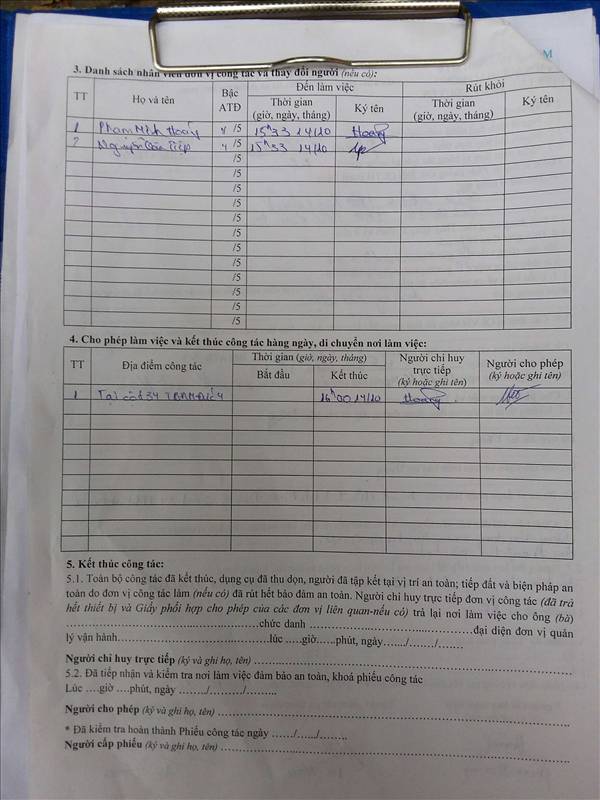 M
3. Danh sách nhân viên đơn vị công tác và thay đổi người (nếu có):
TT Họ và tên Bậc ATĐ Đến làm việc Rút khỏi
Thời gian (giờ, ngày, tháng) Ký tên Thời gian (giờ, ngày, tháng) Ký tên
1 Phạm Minh Hoàng 4 /5 15h33 14/10 Hoàng
2 Nguyễn Văn Tiếp 4 /5 15h33 14/10
/5
/5
/5
/5
/5
/5
/5
/5
/5
/5
/5
/5
4. Cho phép làm việc và kết thúc công tác hàng ngày, di chuyển nơi làm việc:
TT Địa điểm công tác Thời gian (giờ, ngày, tháng) Người chỉ huy trực tiếp (ký hoặc ghi tên) Người cho phép (ký hoặc ghi tên)
Bắt đầu Kết thúc
1 Tại cột 34 16h00 14/10 Hoàng
5. Kết thúc công tác:
5.1. Toàn bộ công tác đã kết thúc, dụng cụ đã thu dọn, người đã tập kết tại vị trí an toàn; tiếp đất và biện pháp an
toàn do đơn vị công tác làm (nếu có) đã rút hết bảo đảm an toàn. Người chỉ huy trực tiếp đơn vị công tác (đã trả
hết thiết bị và Giấy phối hợp cho phép của các đơn vị liên quan-nếu có) trả lại nơi làm việc cho ông (bà)
……………………………chức danh ……………………………đại diện đơn vị quản
lý vận hành……………………………lúc …..giờ…..phút, ngày……./……../…….
Người chỉ huy trực tiếp (ký và ghi họ, tên) ……………………………
5.2. Đã tiếp nhận và kiểm tra nơi làm việc đảm bảo an toàn, khoá phiếu công tác
Lúc ….giờ ….phút, ngày ……../………./………
Người cho phép (ký và ghi họ, tên) ……………………………
* Đã kiểm tra hoàn thành Phiếu công tác ngày ……/……/…….
Người cấp phiếu (ký và ghi họ, tên) ……………………………